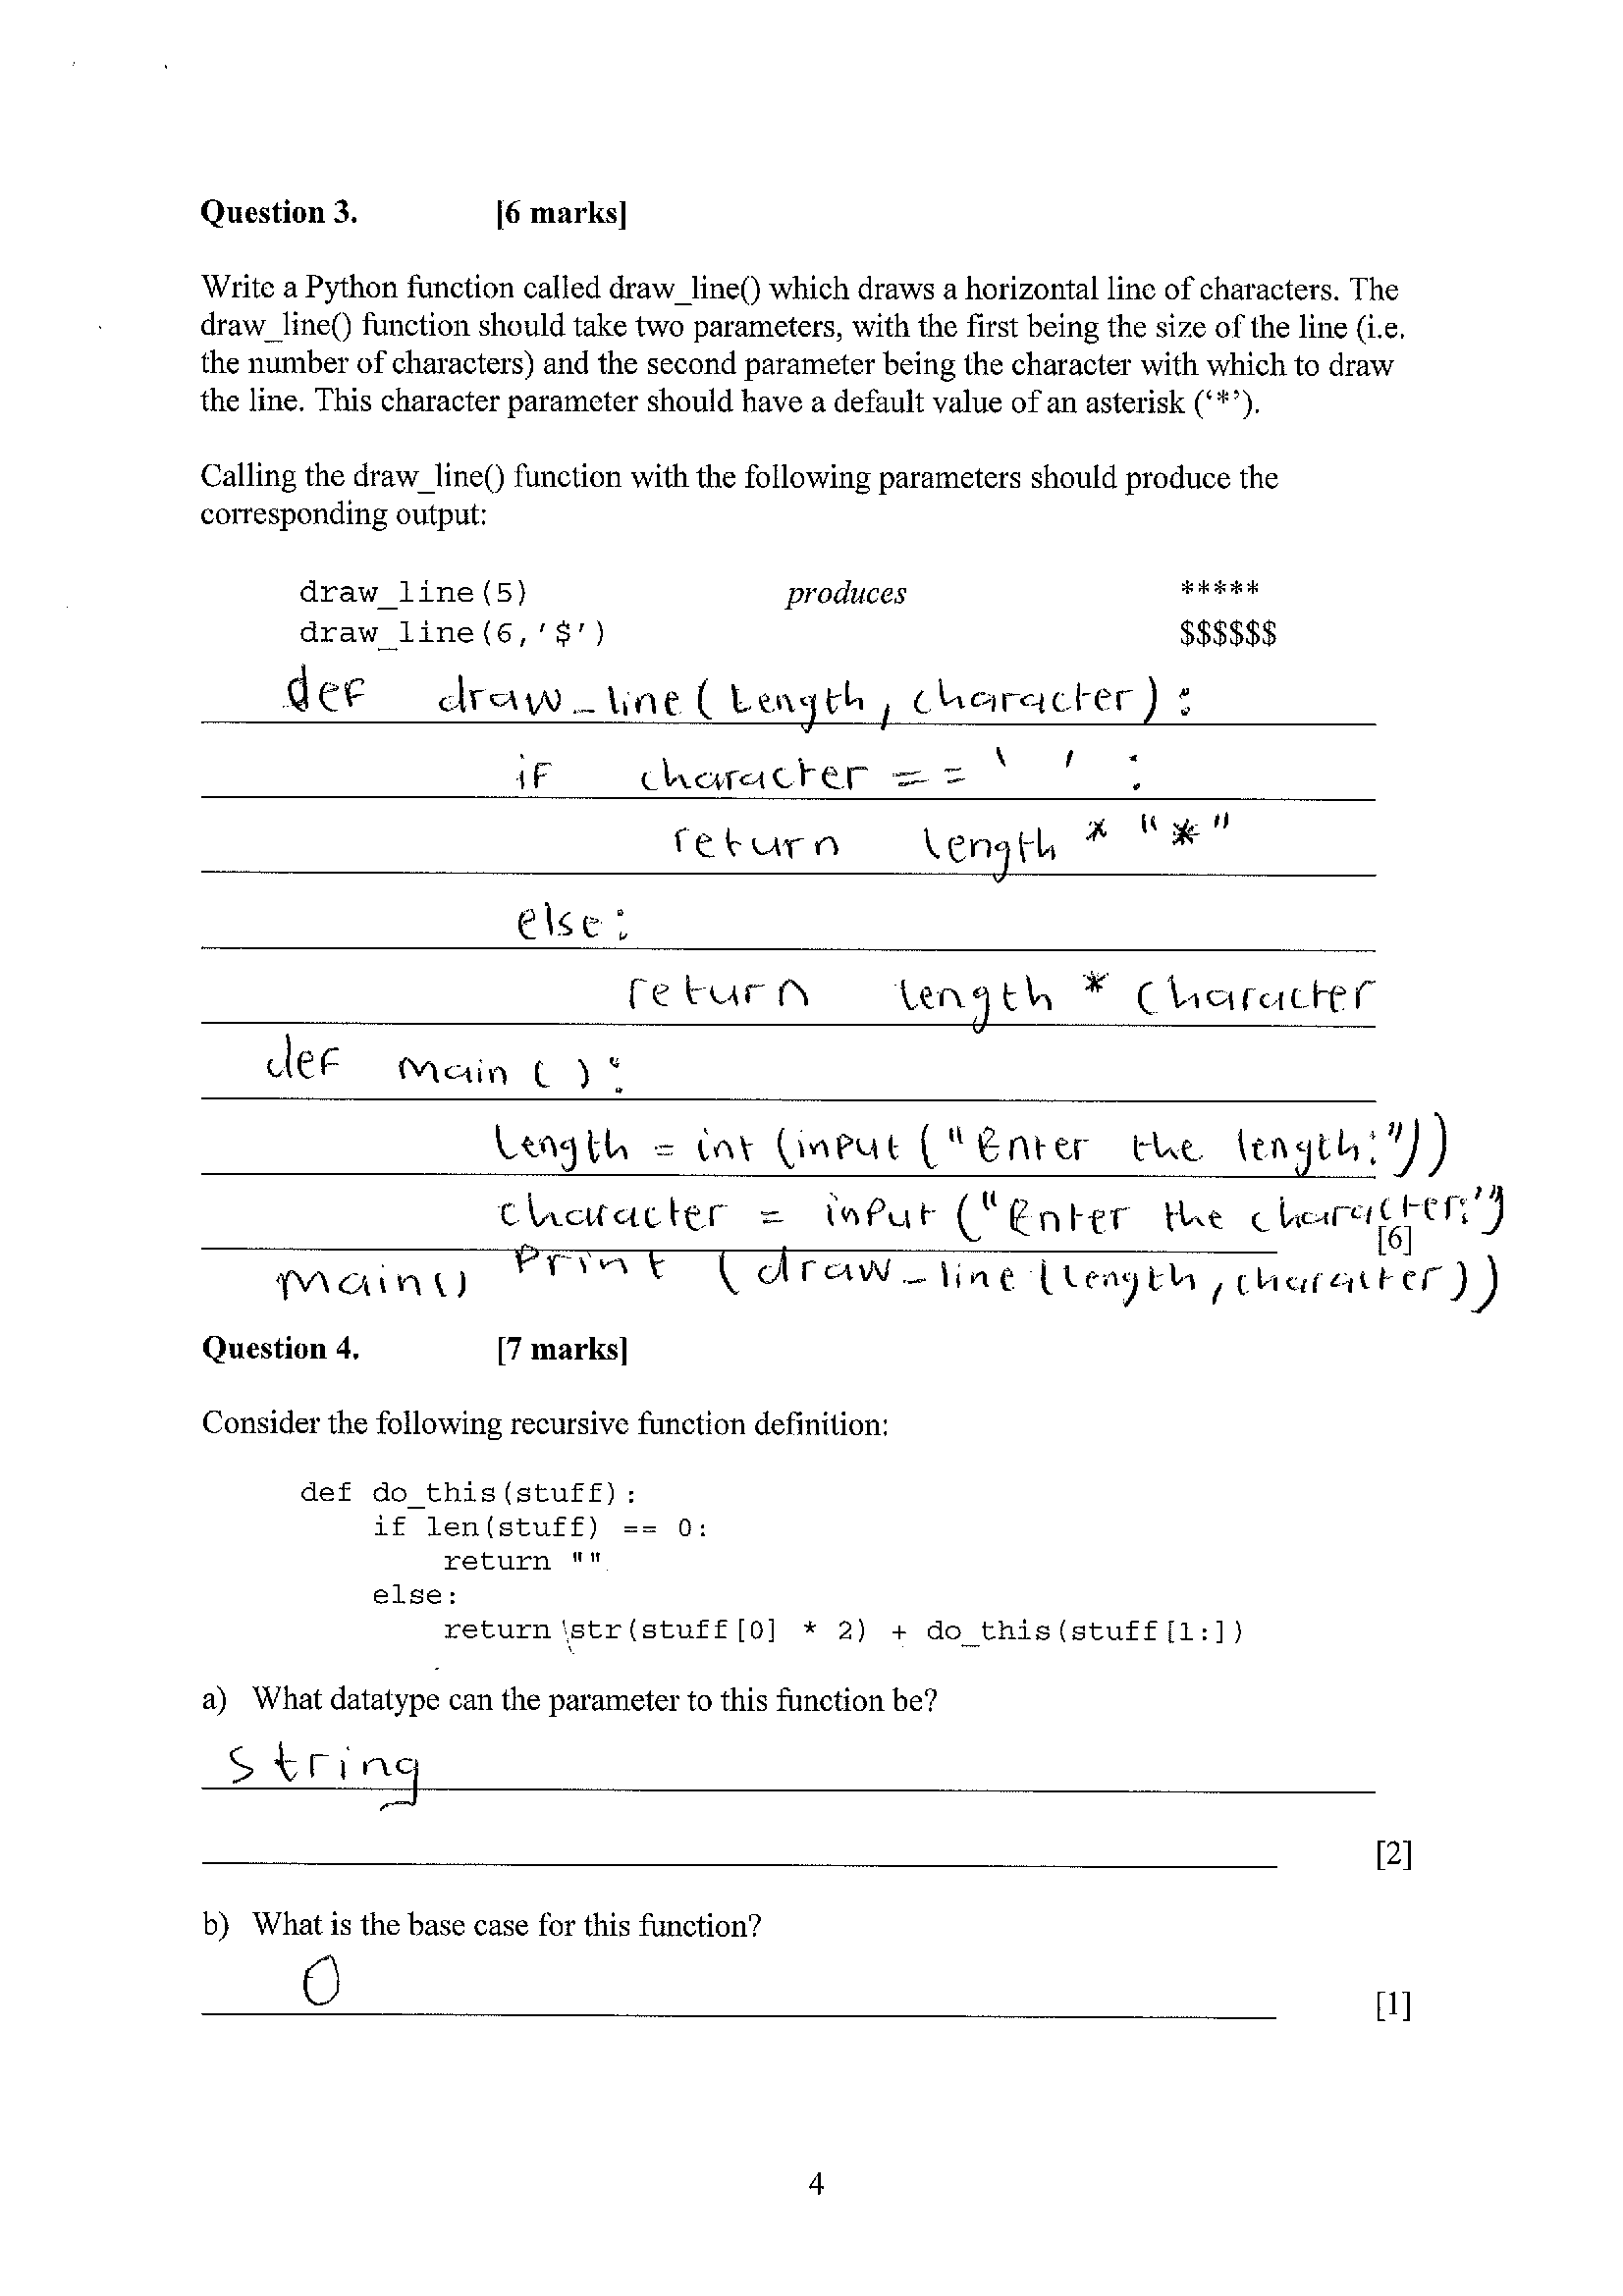 Question 3. [6 marks]
Write a Python function called draw_line() which draws a horizontal line of characters. The
draw_line() function should take two parameters, with the first being the size of the line (i.e.
the number of characters) and the second parameter being the character with which to draw
the line. This character parameter should have a default value of an asterisk (‘*’).
Calling the draw_line() function with the following parameters should produce the
corresponding output:
draw_line(5) produces *****
draw_line(6,'$') $$$$$$
def draw_line(length, character):
if character == ' ' :
return length * "*"
else:
return length * character
def main():
length = int(input("Enter the length:"))
character = input("Enter the character:")
[6]
print (draw_line(length, character))
main()
Question 4. [7 marks]
Consider the following recursive function definition:
def do_this(stuff):
if len(stuff) == 0:
return ""
else:
return str(stuff[0] * 2) + do_this(stuff[1:])
a) What datatype can the parameter to this function be?
string
[2]
b) What is the base case for this function?
0
[1]
4